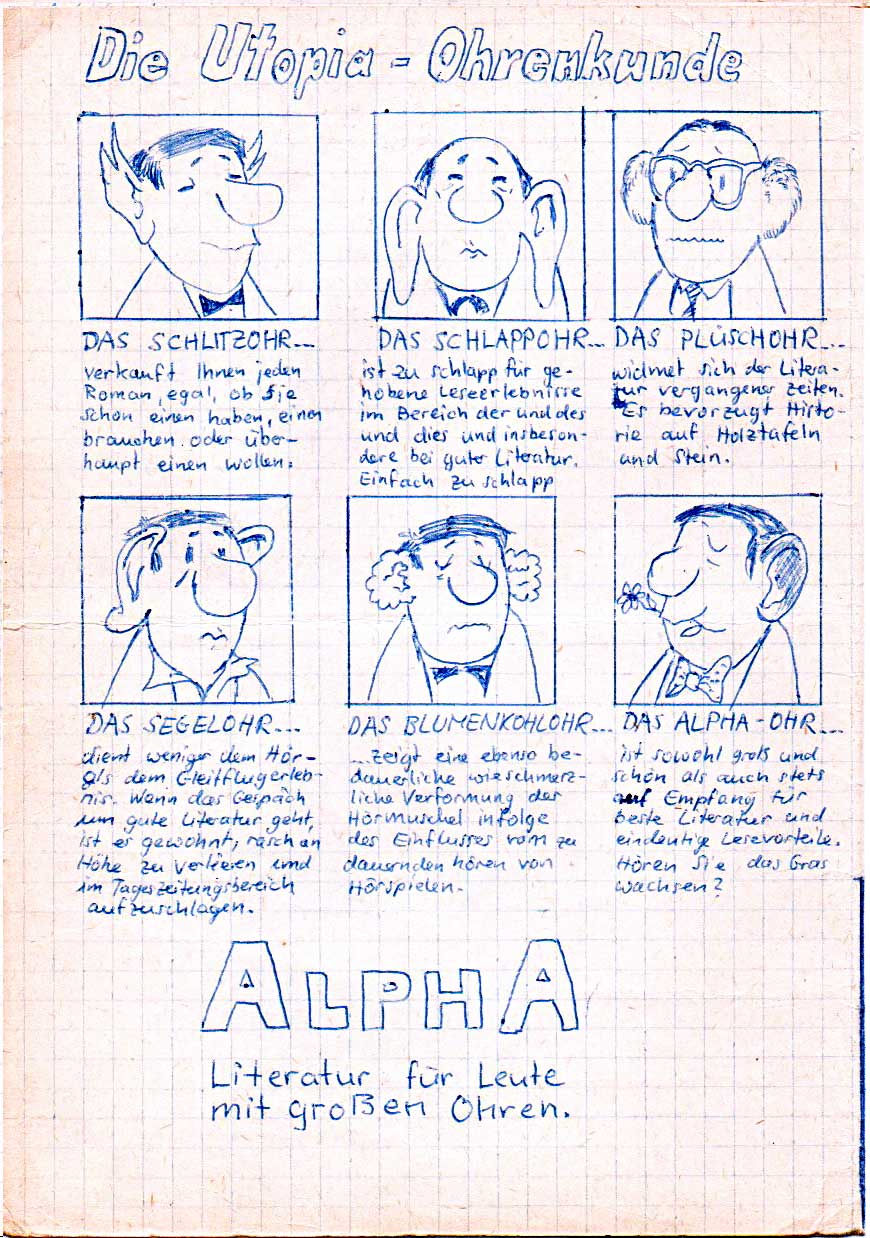 Die Utopia - Ohrenkunde
DAS SCHLITZOHR...
verkauft Ihnen jeden
Roman, egal, ob Sie
schon einen haben, einen
brauchen oder über-
haupt einen wollen.
DAS SCHLAPPOHR...
ist zu schlapp für ge-
hobene Leseerlebnisse
im Bereich der und des
und dies und insbeson-
dere bei guter Literatur.
Einfach zu schlapp
DAS PLÜSCHOHR...
widmet sich der Litera-
tur vergangener Zeiten.
Es bevorzugt Histo-
rie auf Holztafeln
und Stein.
DAS SEGELOHR...
dient weniger dem Hör-
als dem Gleitflugerleb-
nis. Wenn das Gespäch
um gute Literatur geht,
ist es gewohnt, rasch an
Höhe zu verlieren und
im Tageszeitungsbereich
aufzuschlagen.
DAS BLUMENKOHLOHR...
...zeigt eine ebenso be-
dauerliche wie schmerz-
liche Verformung der
Hörmuschel infolge
des Einflusses vom zu
dauernden hören von
Hörspielen.
DAS ALPHA-OHR...
ist sowohl groß und
schön als auch stets
auf Empfang für
beste Literatur und
eindeutige Lesevorteile.
Hören Sie das Gras
wachsen?
ALPHA
Literatur für Leute
mit großen Ohren.